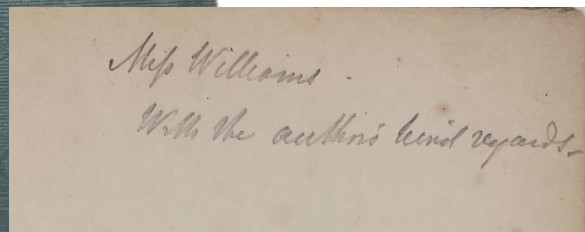 Miss Williams.
With the author's kind regards-